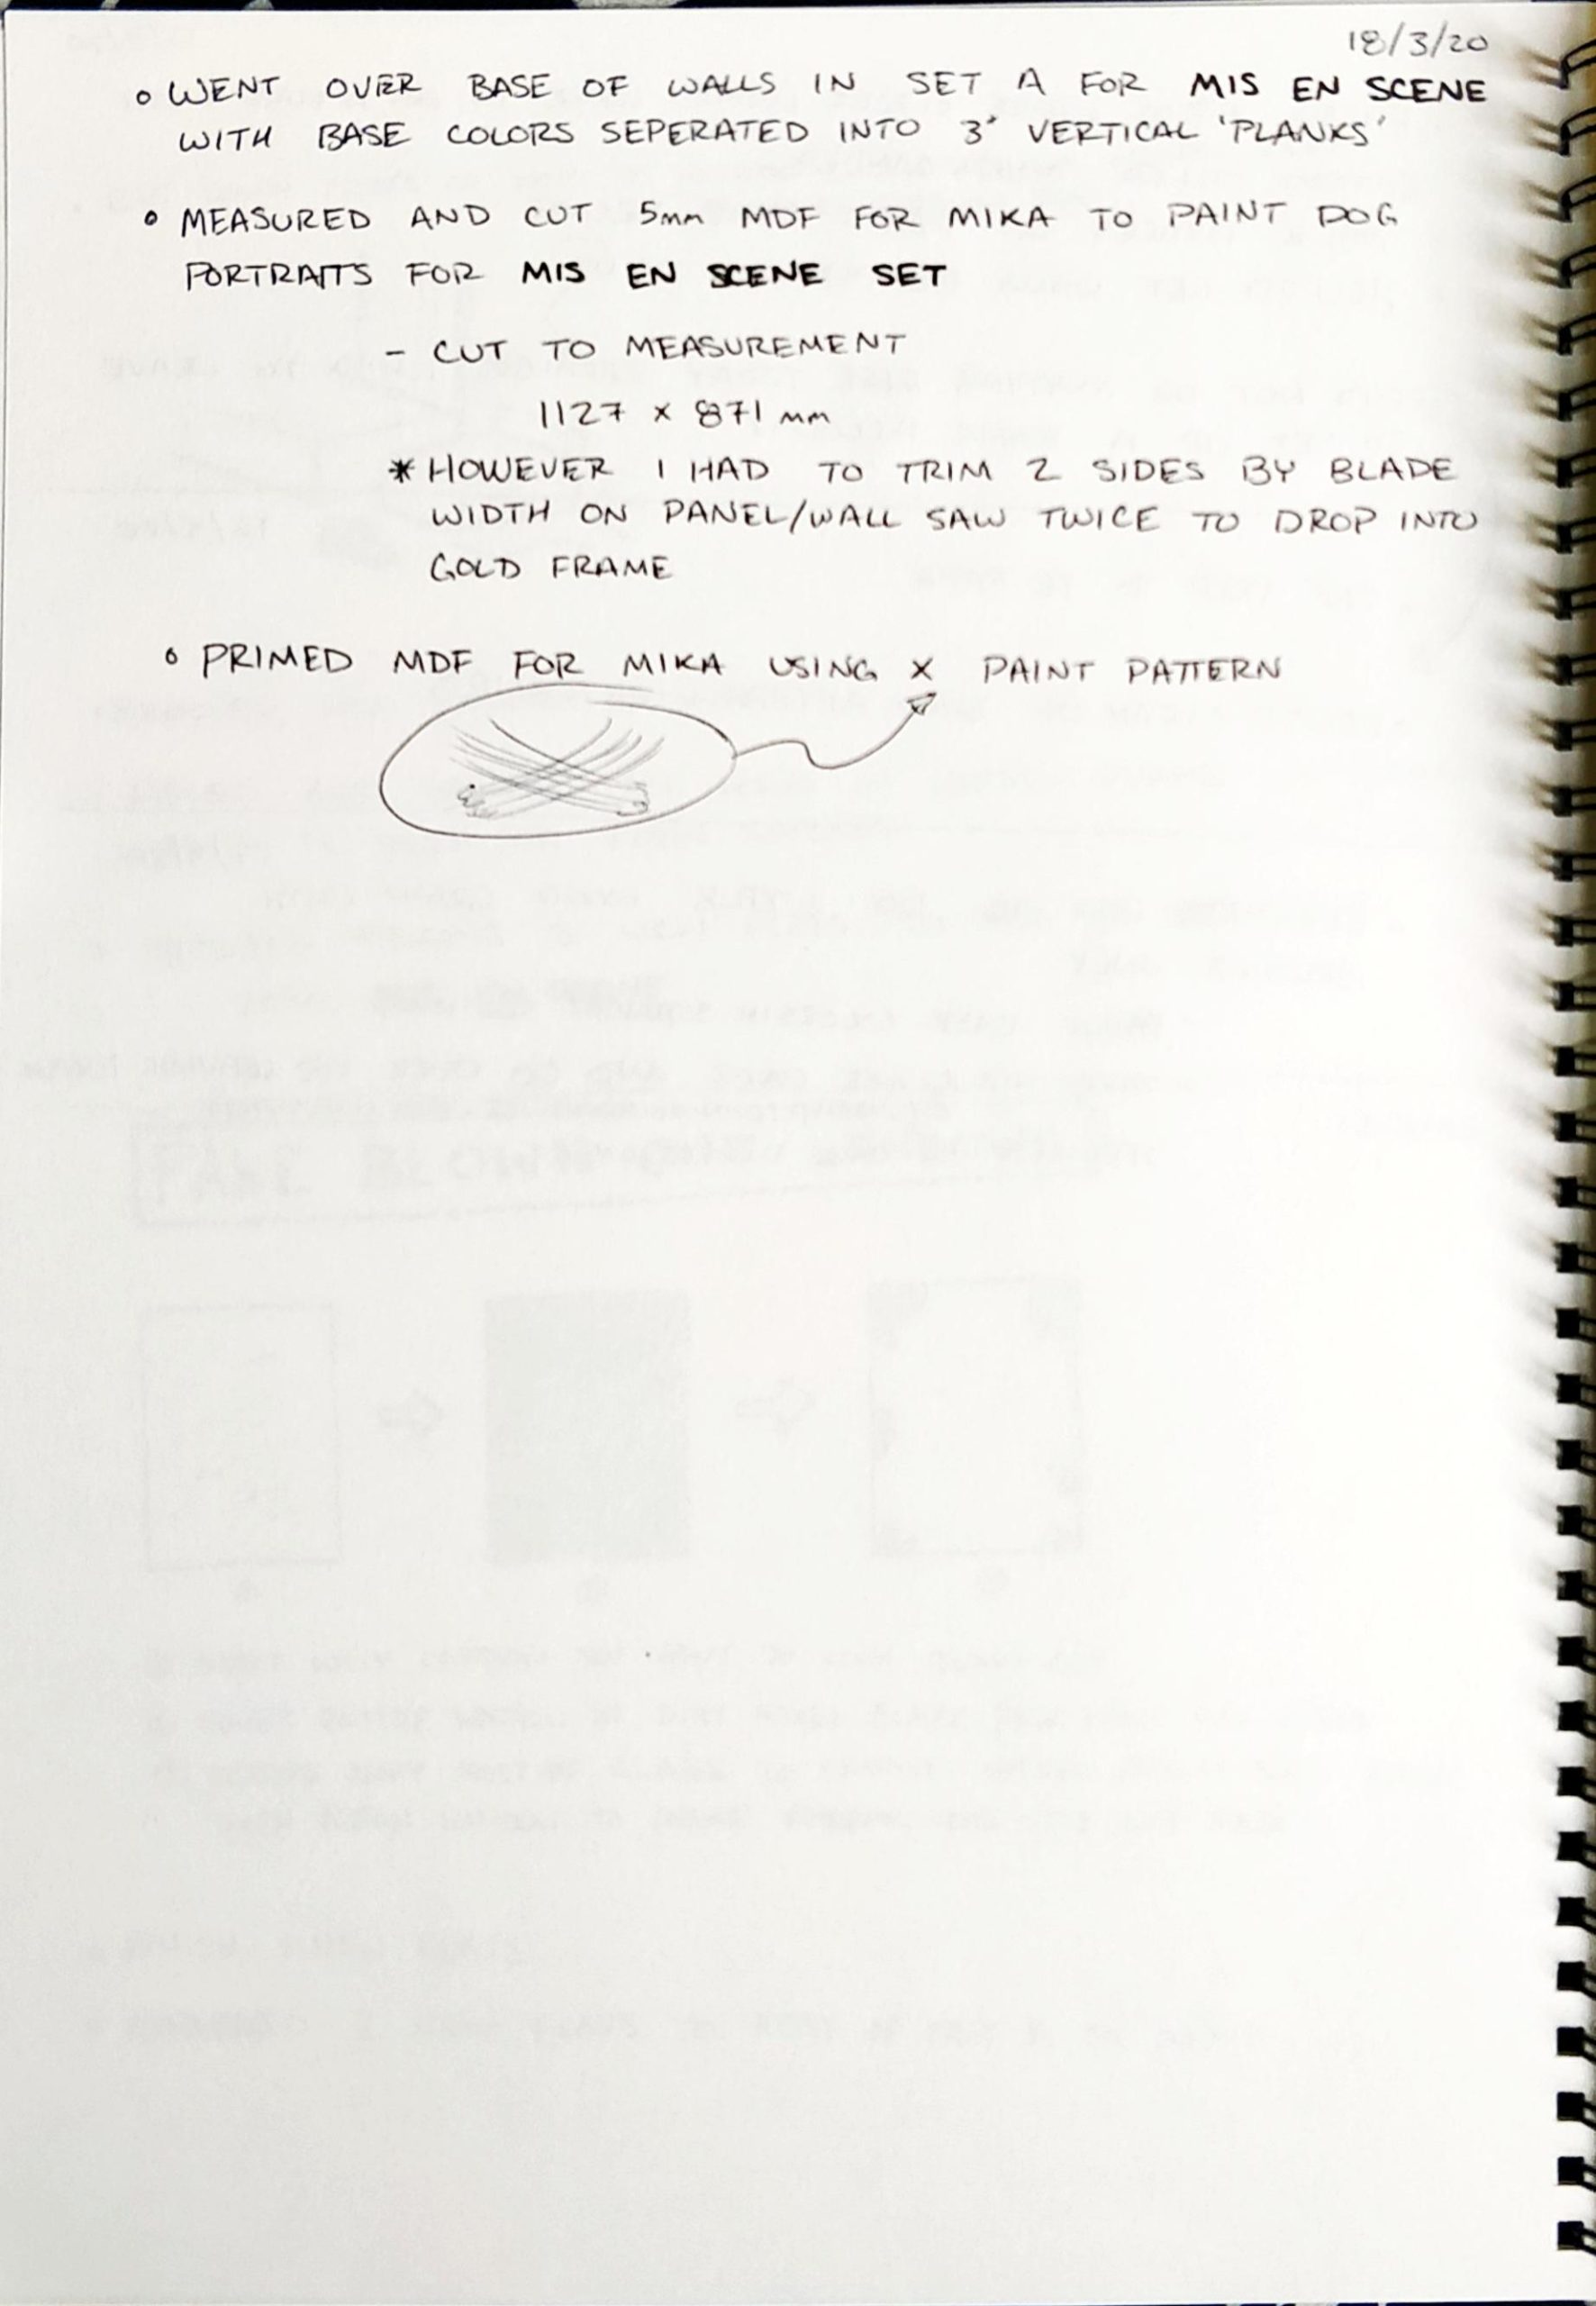 18/3/20
∘ WENT OVER BASE OF WALLS IN SET A FOR MIS EN SCENE
WITH BASE COLORS SEPERATED INTO 3' VERTICAL 'PLANKS'
∘ MEASURED AND CUT 5mm MDF FOR MIKA TO PAINT DOG
PORTRAITS FOR MIS EN SCENE SET
- CUT TO MEASUREMENT
1127 x 871 mm
* HOWEVER I HAD TO TRIM 2 SIDES BY BLADE
WIDTH ON PANEL/WALL SAW TWICE TO DROP INTO
GOLD FRAME
∘ PRIMED MDF FOR MIKA USING X PAINT PATTERN